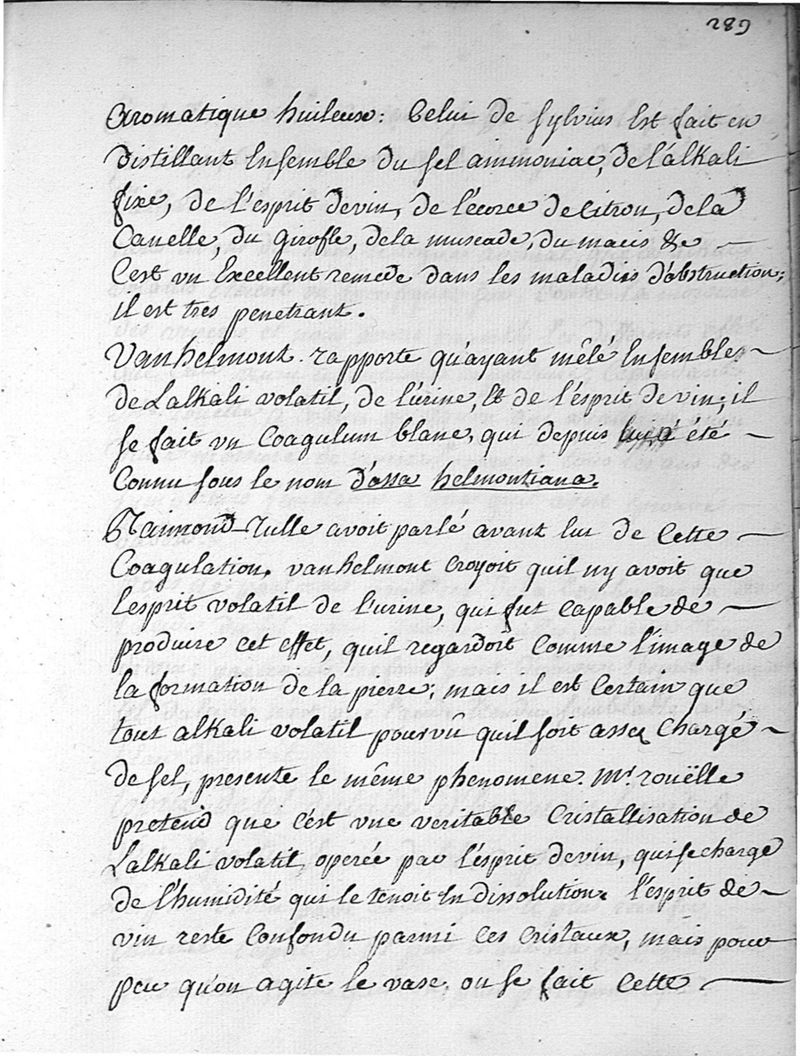 289
aromatique huileux: Celui de Sylvius Est fait en
distillant Ensemble du sel ammoniac, de l'alkali
fixe, de l'esprit de vin, de l'écorce de citron, de la
Canelle, du girofle, de la muscade, du macis &c
C'est un Excellent remede dans les maladies d'obstruction;
il est tres penetrant.
Vanhelmont rapporte qu'ayant mêlé Ensemble
de Lalkali volatil, de l'urine, Et de l'esprit de vin, il
se fait un Coagulum blanc, qui depuis a été
Connu sous le nom d'assa helmontiana.
Raimond Lulle avoit parlé avant lui de Cette
Coagulation. vanhelmont croyoit quil ny avoit que
l'esprit volatil de l'urine, qui fut capable de
produire cet effet, quil regardoit comme l'image de
la formation de la pierre; mais il est Certain que
tout alkali volatil pourvû quil soit assez Chargé
de sel, presente le même phenomene. Mr. rouëlle
pretend que C'est une veritable Cristallisation de
Lalkali volatil, operée par l'esprit de vin, qui se charge
de l'humidité qui le tenoit En dissolution. l'esprit de
vin reste Confondu parmi ces cristaux, mais pour
peu qu'on agite le vase, ou se fait Cette